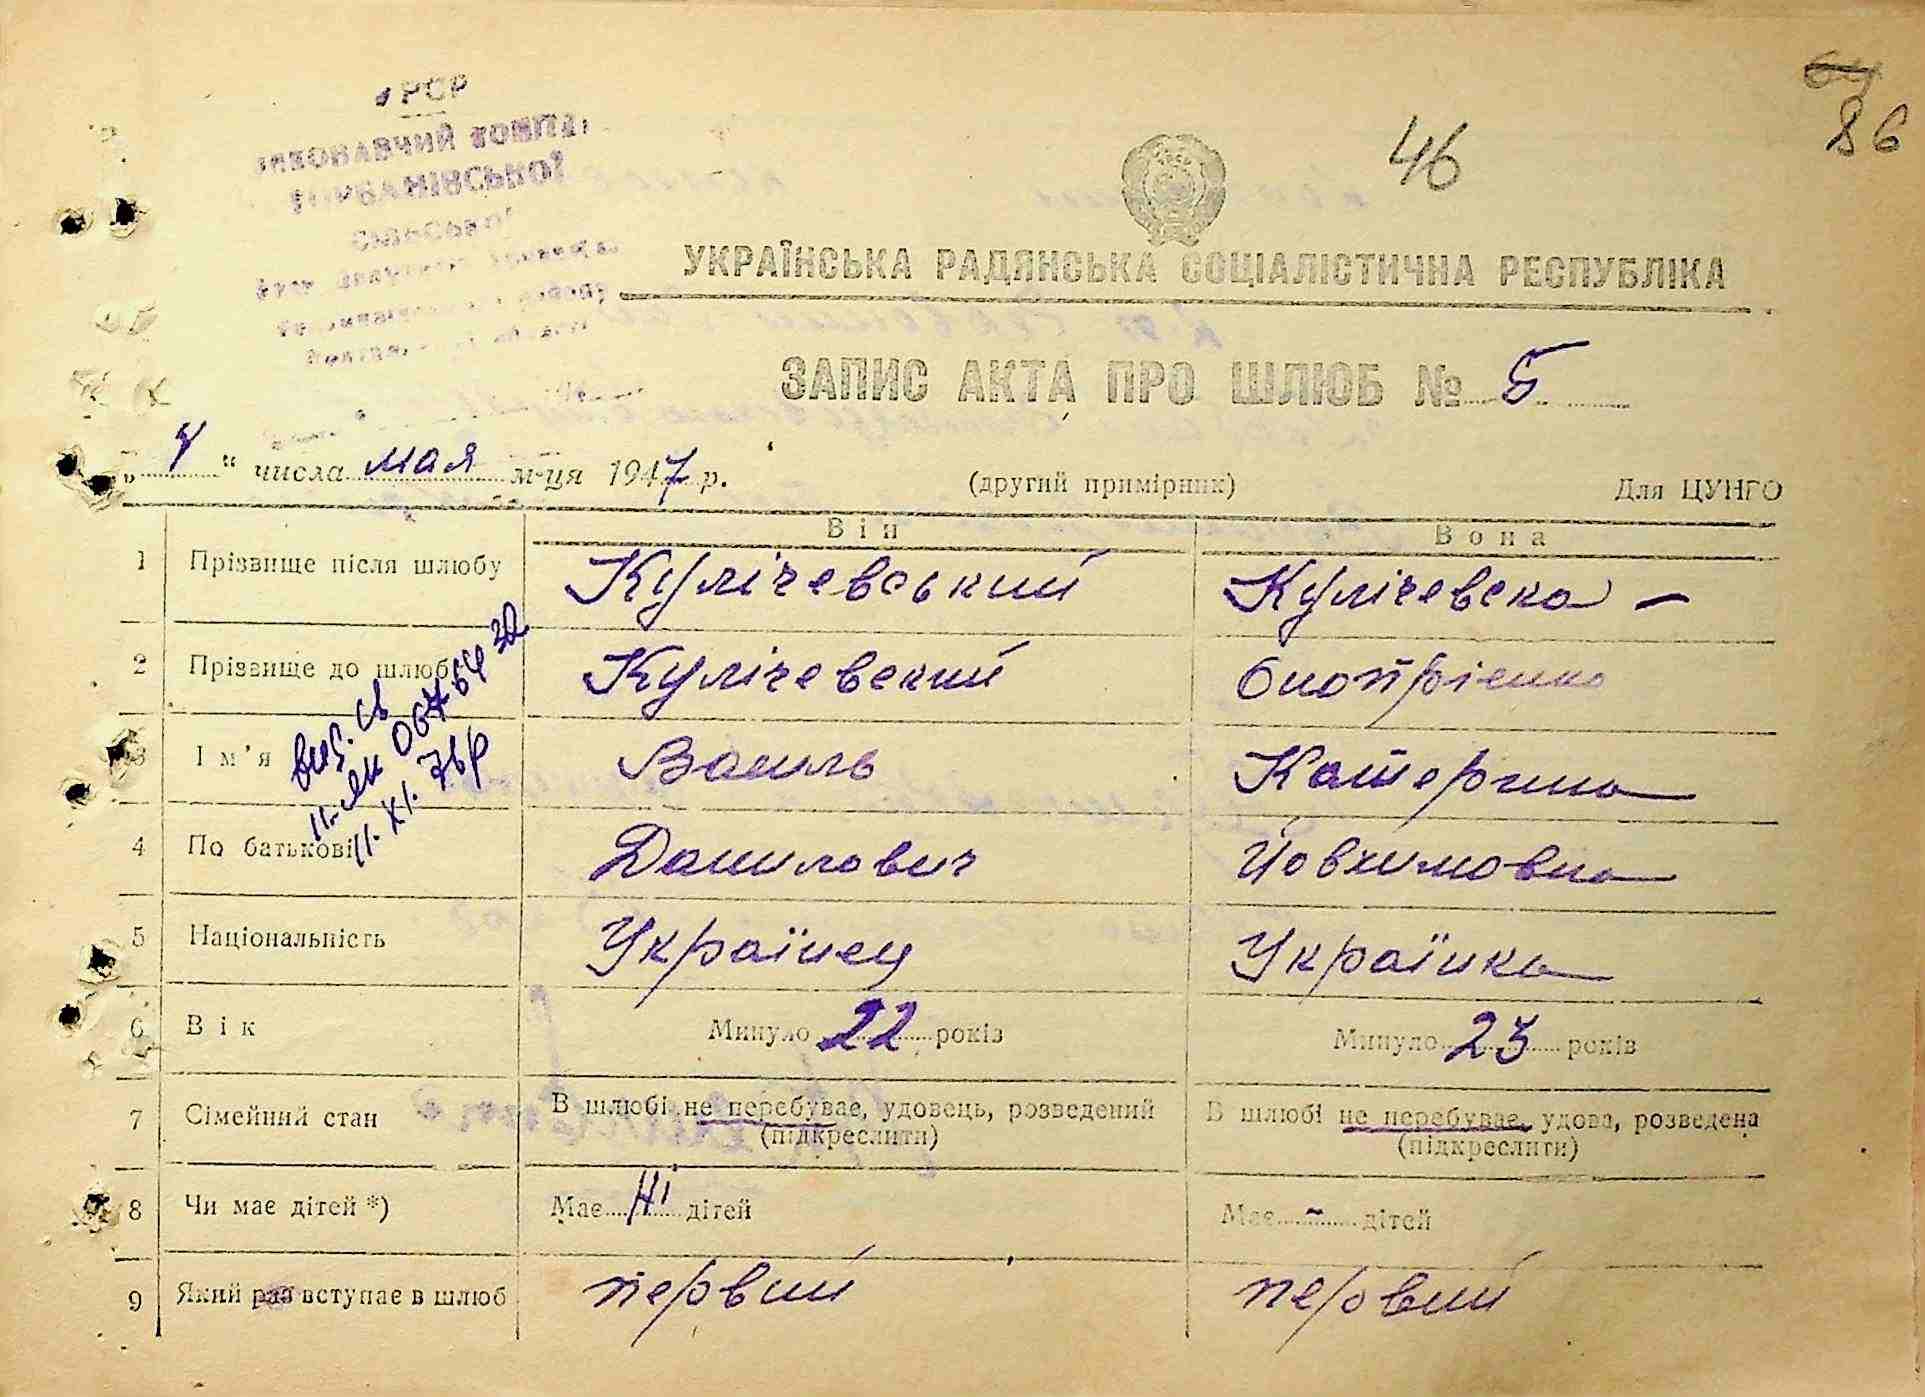 РСР
46
86
УКРАЇНСЬКА РАДЯНСЬКА СОЦІАЛІСТИЧНА РЕСПУБЛІКА
ЗАПИС АКТА ПРО ШЛЮБ № 5
числа мая м-ця 1947 р. (другий примірник) Для ЦУНГО
Він Вона
1 Прізвище після шлюбу Кулічевський Кулічевска –
2 Прізвище до шлюбу Кулічевский Онопрієнко
3 Ім'я Василь Катерина
4 По батькові Данилович Йовхимовна
5 Національність Українец Українка
6 Вік Минуло 22 років Минуло 23 років
7 Сімейний стан В шлюбі не перебуває, удовець, розведений В шлюбі не перебуває, удова, розведена
(підкреслити) (підкреслити)
8 Чи має дітей *) Має ні дітей Має - дітей
9 Який раз вступає в шлюб первий первий
11. XI. 76р